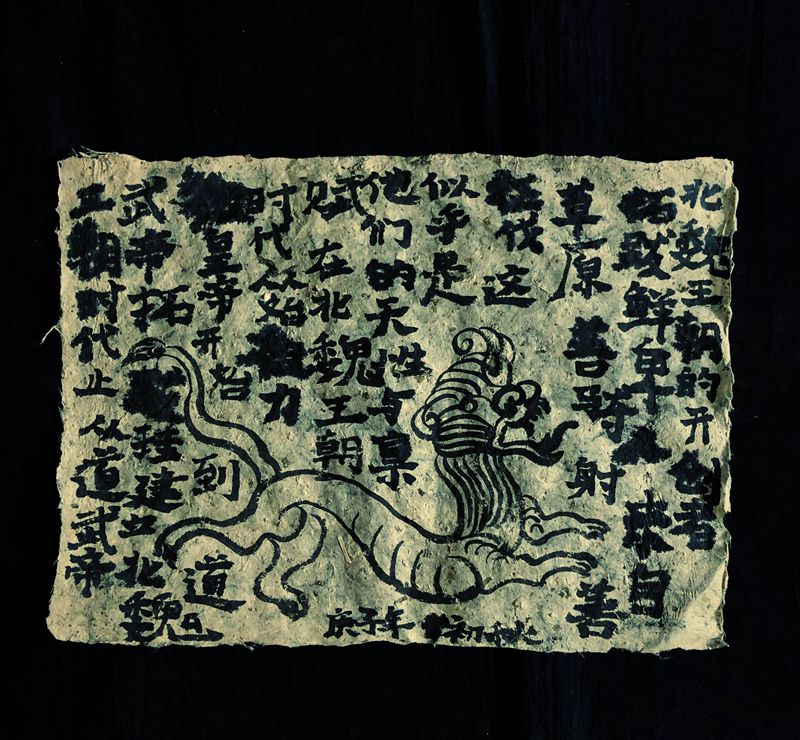 北魏王朝的开创者
拓跋鲜卑人来自
草原善骑射善
征伐这
似乎是
他们的天性与禀
赋在北魏王朝
时代从始祖力
皇帝开始到道
武帝拓跋珪建立北魏
王朝时代止从道武帝
庚子年初秋